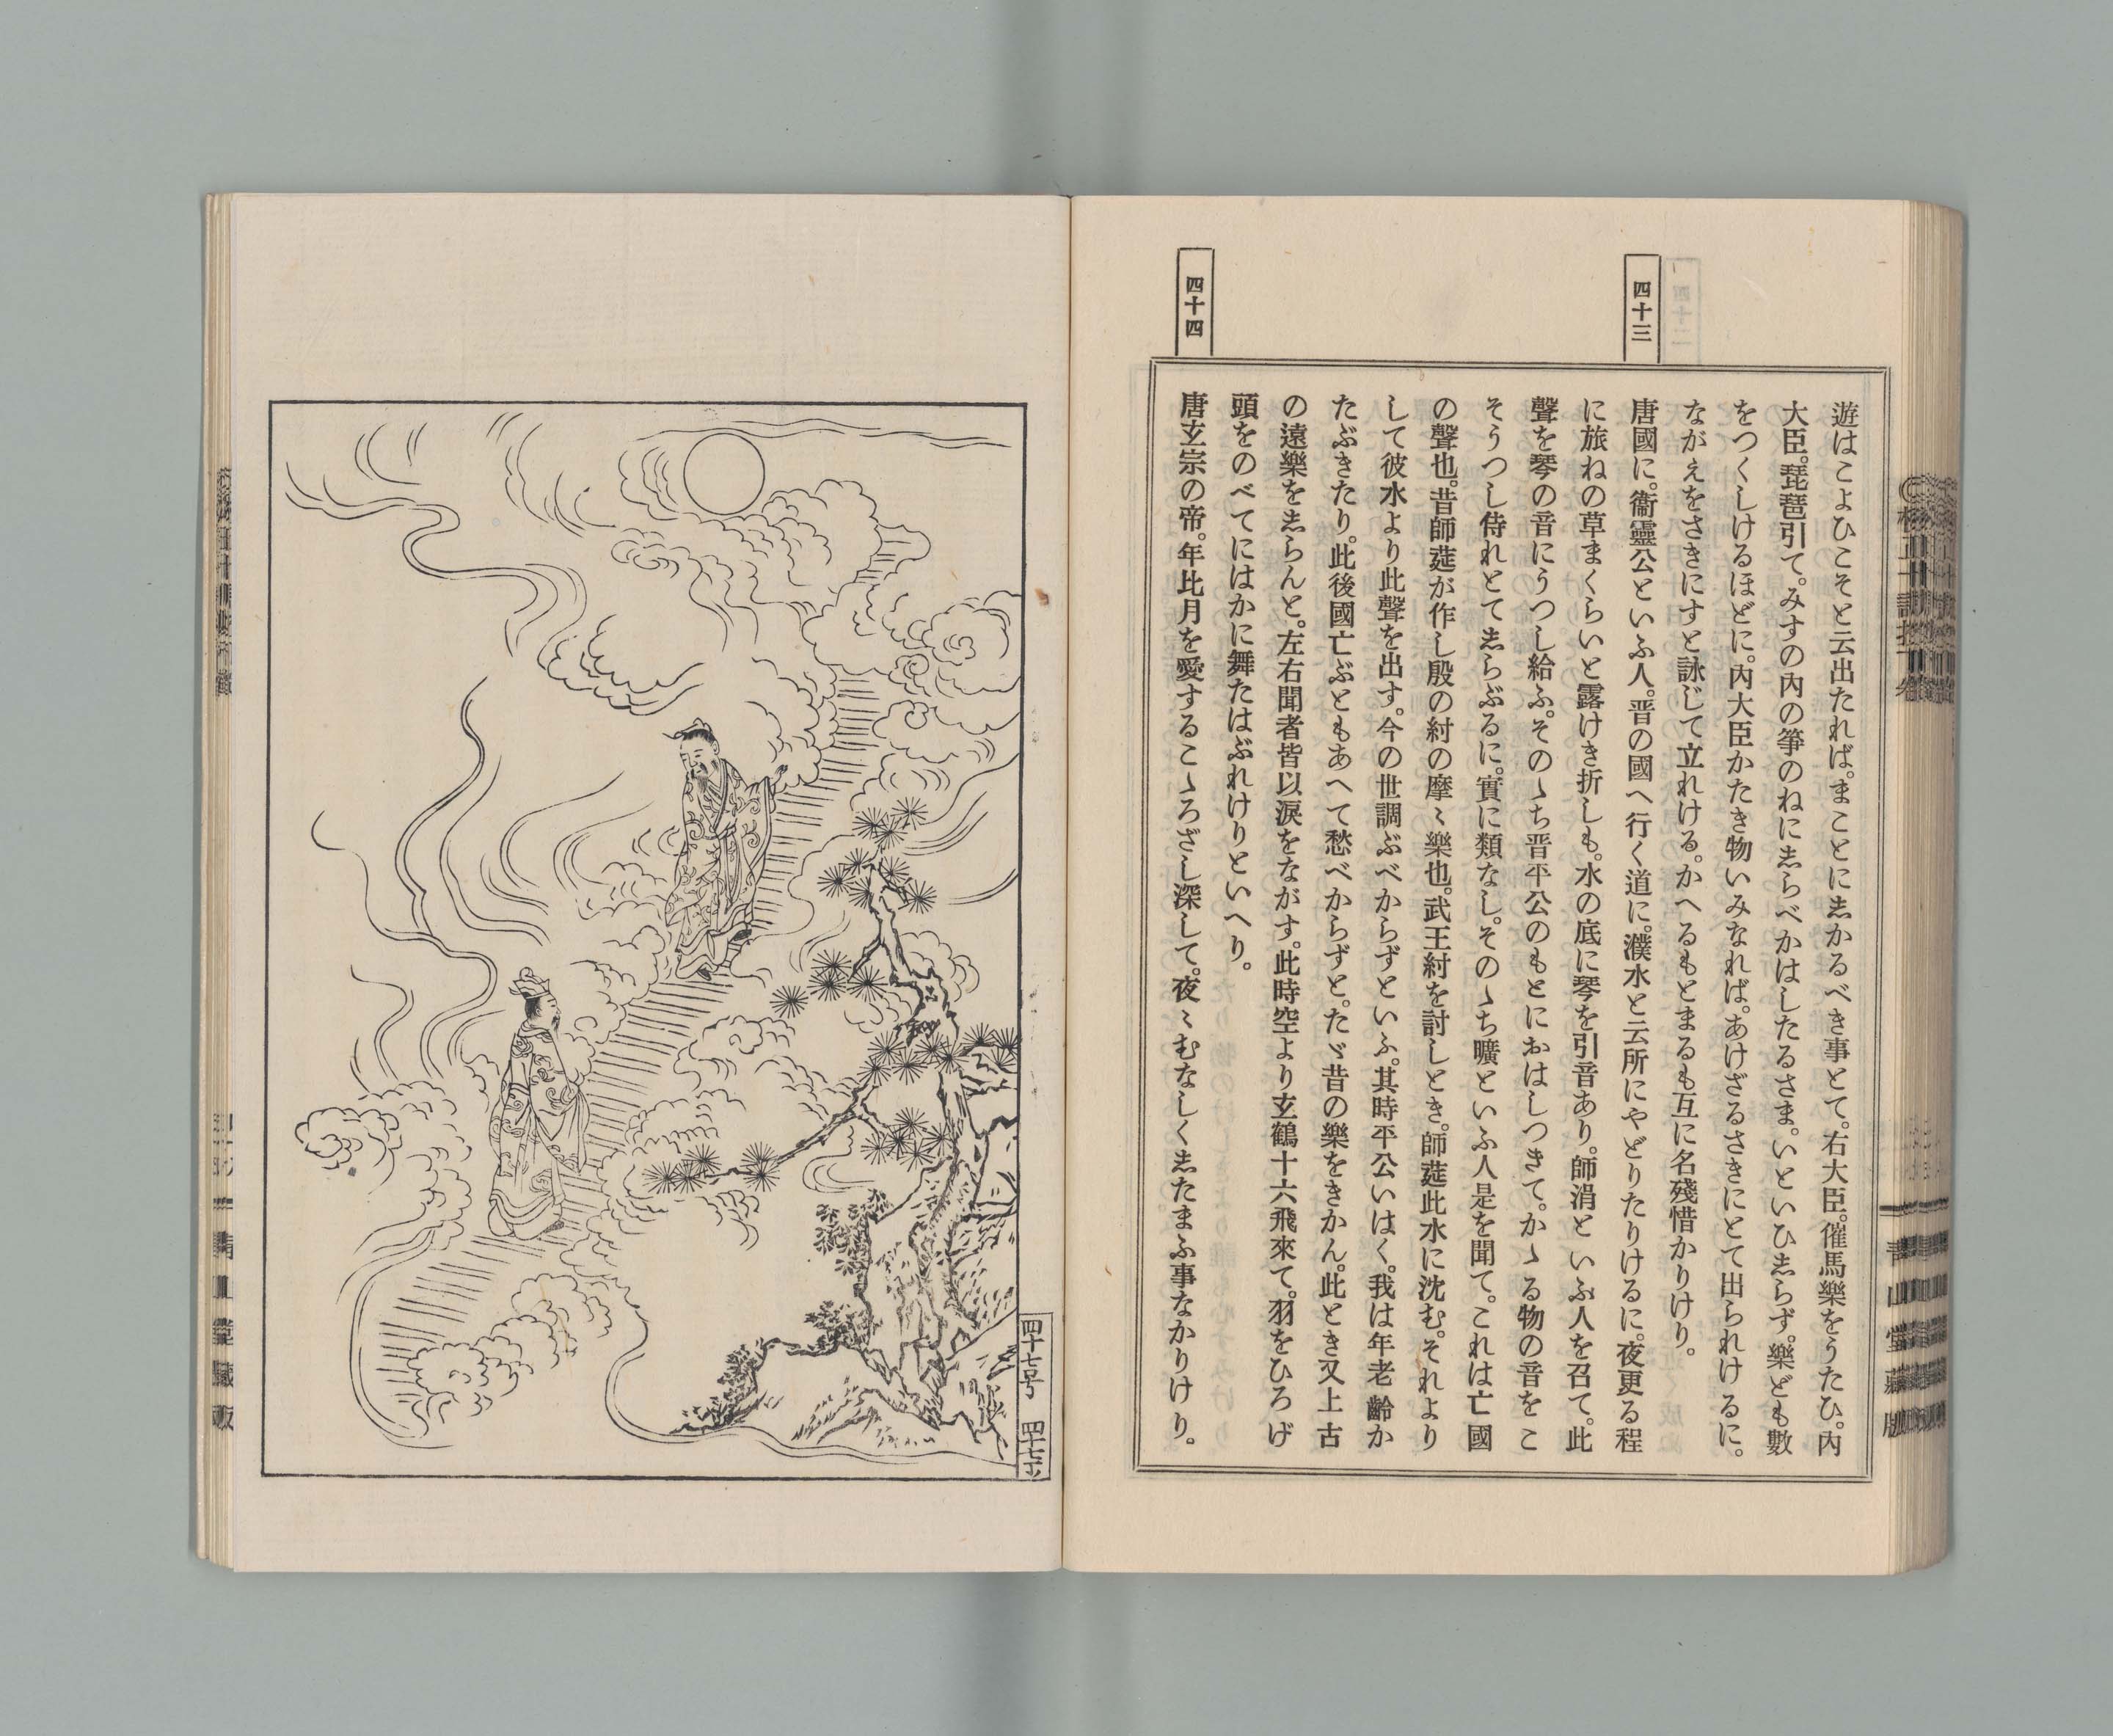 四十三
四十四
遊はこよひこそと云出たれば。まことに志かるべき事とて。右大臣。催馬樂をうたひ。內
大臣。琵琶引て。みすの內の箏のねに志らべかはしたるさま。いといひ志らず。樂ども數
をつくしけるほどに。內大臣かたき物いみなれば。あけざるさきにとて出られけるに。
ながえをさきにすと詠じて立れける。かへるもとまるも互に名殘惜かりけり。
唐國に。衞靈公といふ人。晋の國へ行く道に。濮水と云所にやどりたりけるに。夜更る程
に旅ねの草まくらいと露けき折しも。水の底に琴を引音あり。師涓といふ人を召て。此
聲を琴の音にうつし給ふ。そのゝち晋平公のもとにおはしつきて。かゝる物の音をこ
そうつし侍れとて志らぶるに。實に類なし。そのゝち曠といふ人是を聞て。これは亡國
の聲也。昔師莚が作し殷の紂の摩〻樂也。武王紂を討しとき。師莚此水に沈む。それより
して彼水より此聲を出す。今の世調ぶべからずといふ。其時平公いはく。我は年老齡か
たぶきたり。此後國亡ぶともあへて愁べからずと。たゞ昔の樂をきかん。此とき又上古
の遠樂を志らんと。左右聞者皆以淚をながす。此時空より玄鶴十六飛來て。羽をひろげ
頭をのべてにはかに舞たはぶれけりといへり。
唐玄宗の帝。年比月を愛するこゝろざし深して。夜〻むなしく志たまふ事なかりけり。
青山堂藏版
四十七号 四十七丁